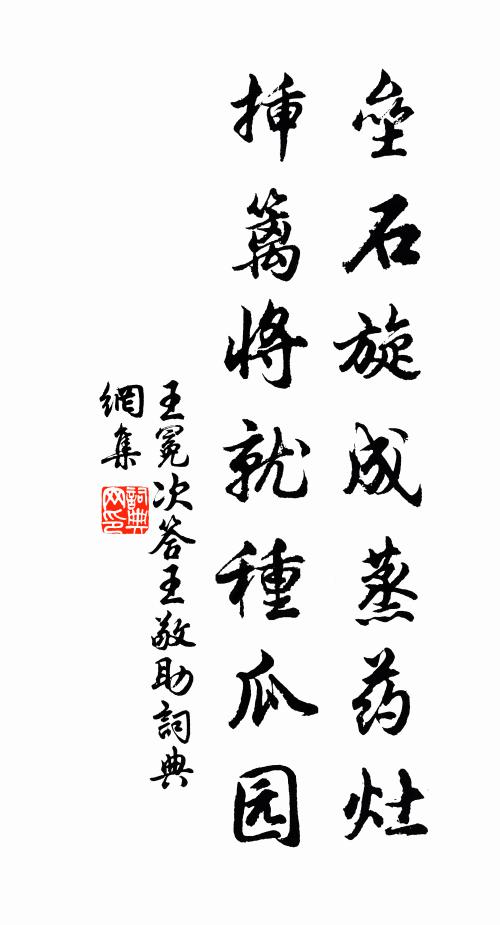 垒石旋成蒸药灶
挿篱將就種瓜园
王冕次答王敬助詞典
網集
詞典
网印